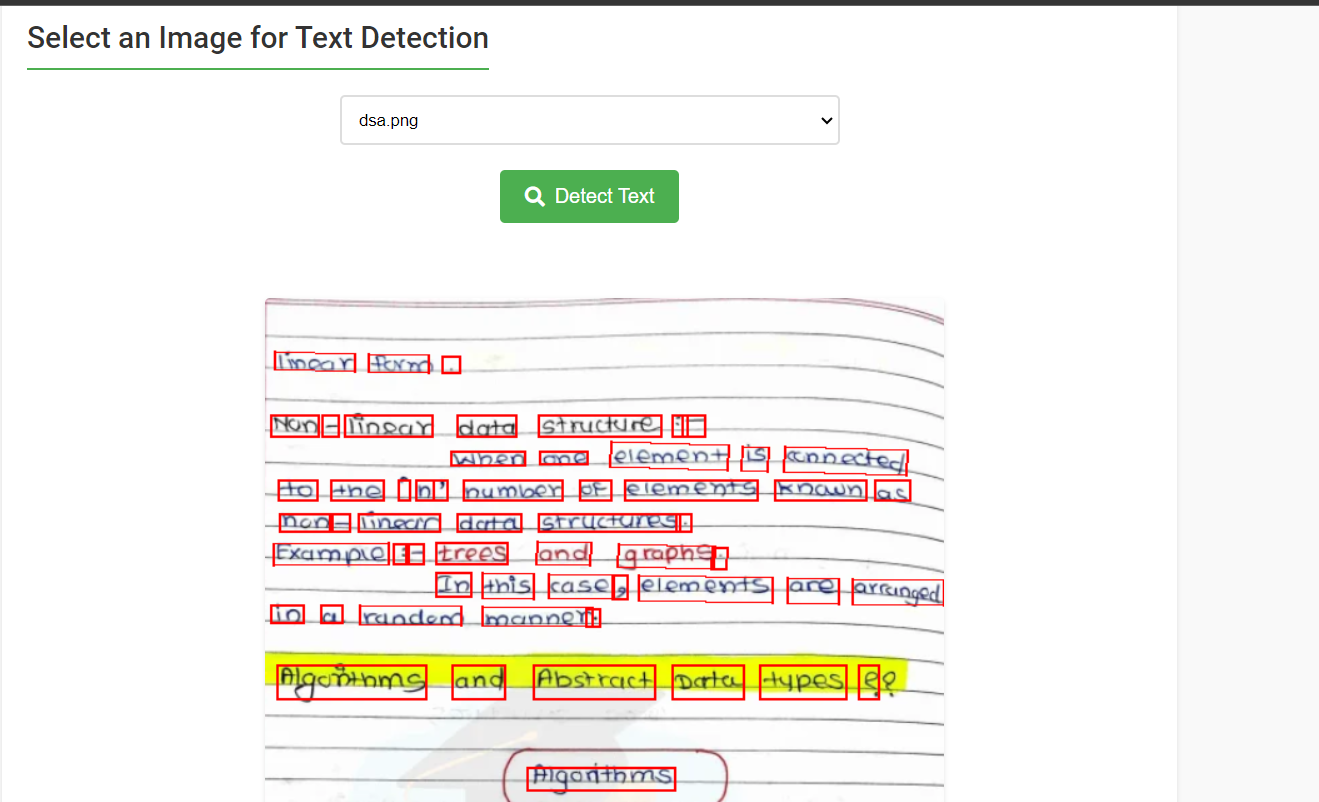 Select an Image for Text Detection
dsa.png
Detect Text
linear form .
Non-linear data structure :-
When one element is connected
to the 'n' number of elements known as
non-linear data structures.
Example :- trees and graphs.
In this case, elements are arranged
in a random manner.
Algorithms and Abstract Data types ??
Algorithms